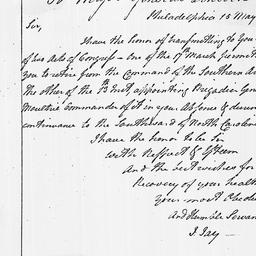 To Major General Lincoln
Philadelphia 13 May
Sir,
I have the honor of transmitting to You
of two Acts of Congress – one of the 17th March permitti
you to retire from the Command of the Southern Ar
the other of the Inst appointing Brigadier Gen
Moultrie commander of it in your Absence & durin
continuance to the Southward of North Carolina
I have the honor to be Sir
with Respect & Esteem
And the best wishes for
Recovery of your health
Your most Obedie
And Humble Servan
J. Jay –